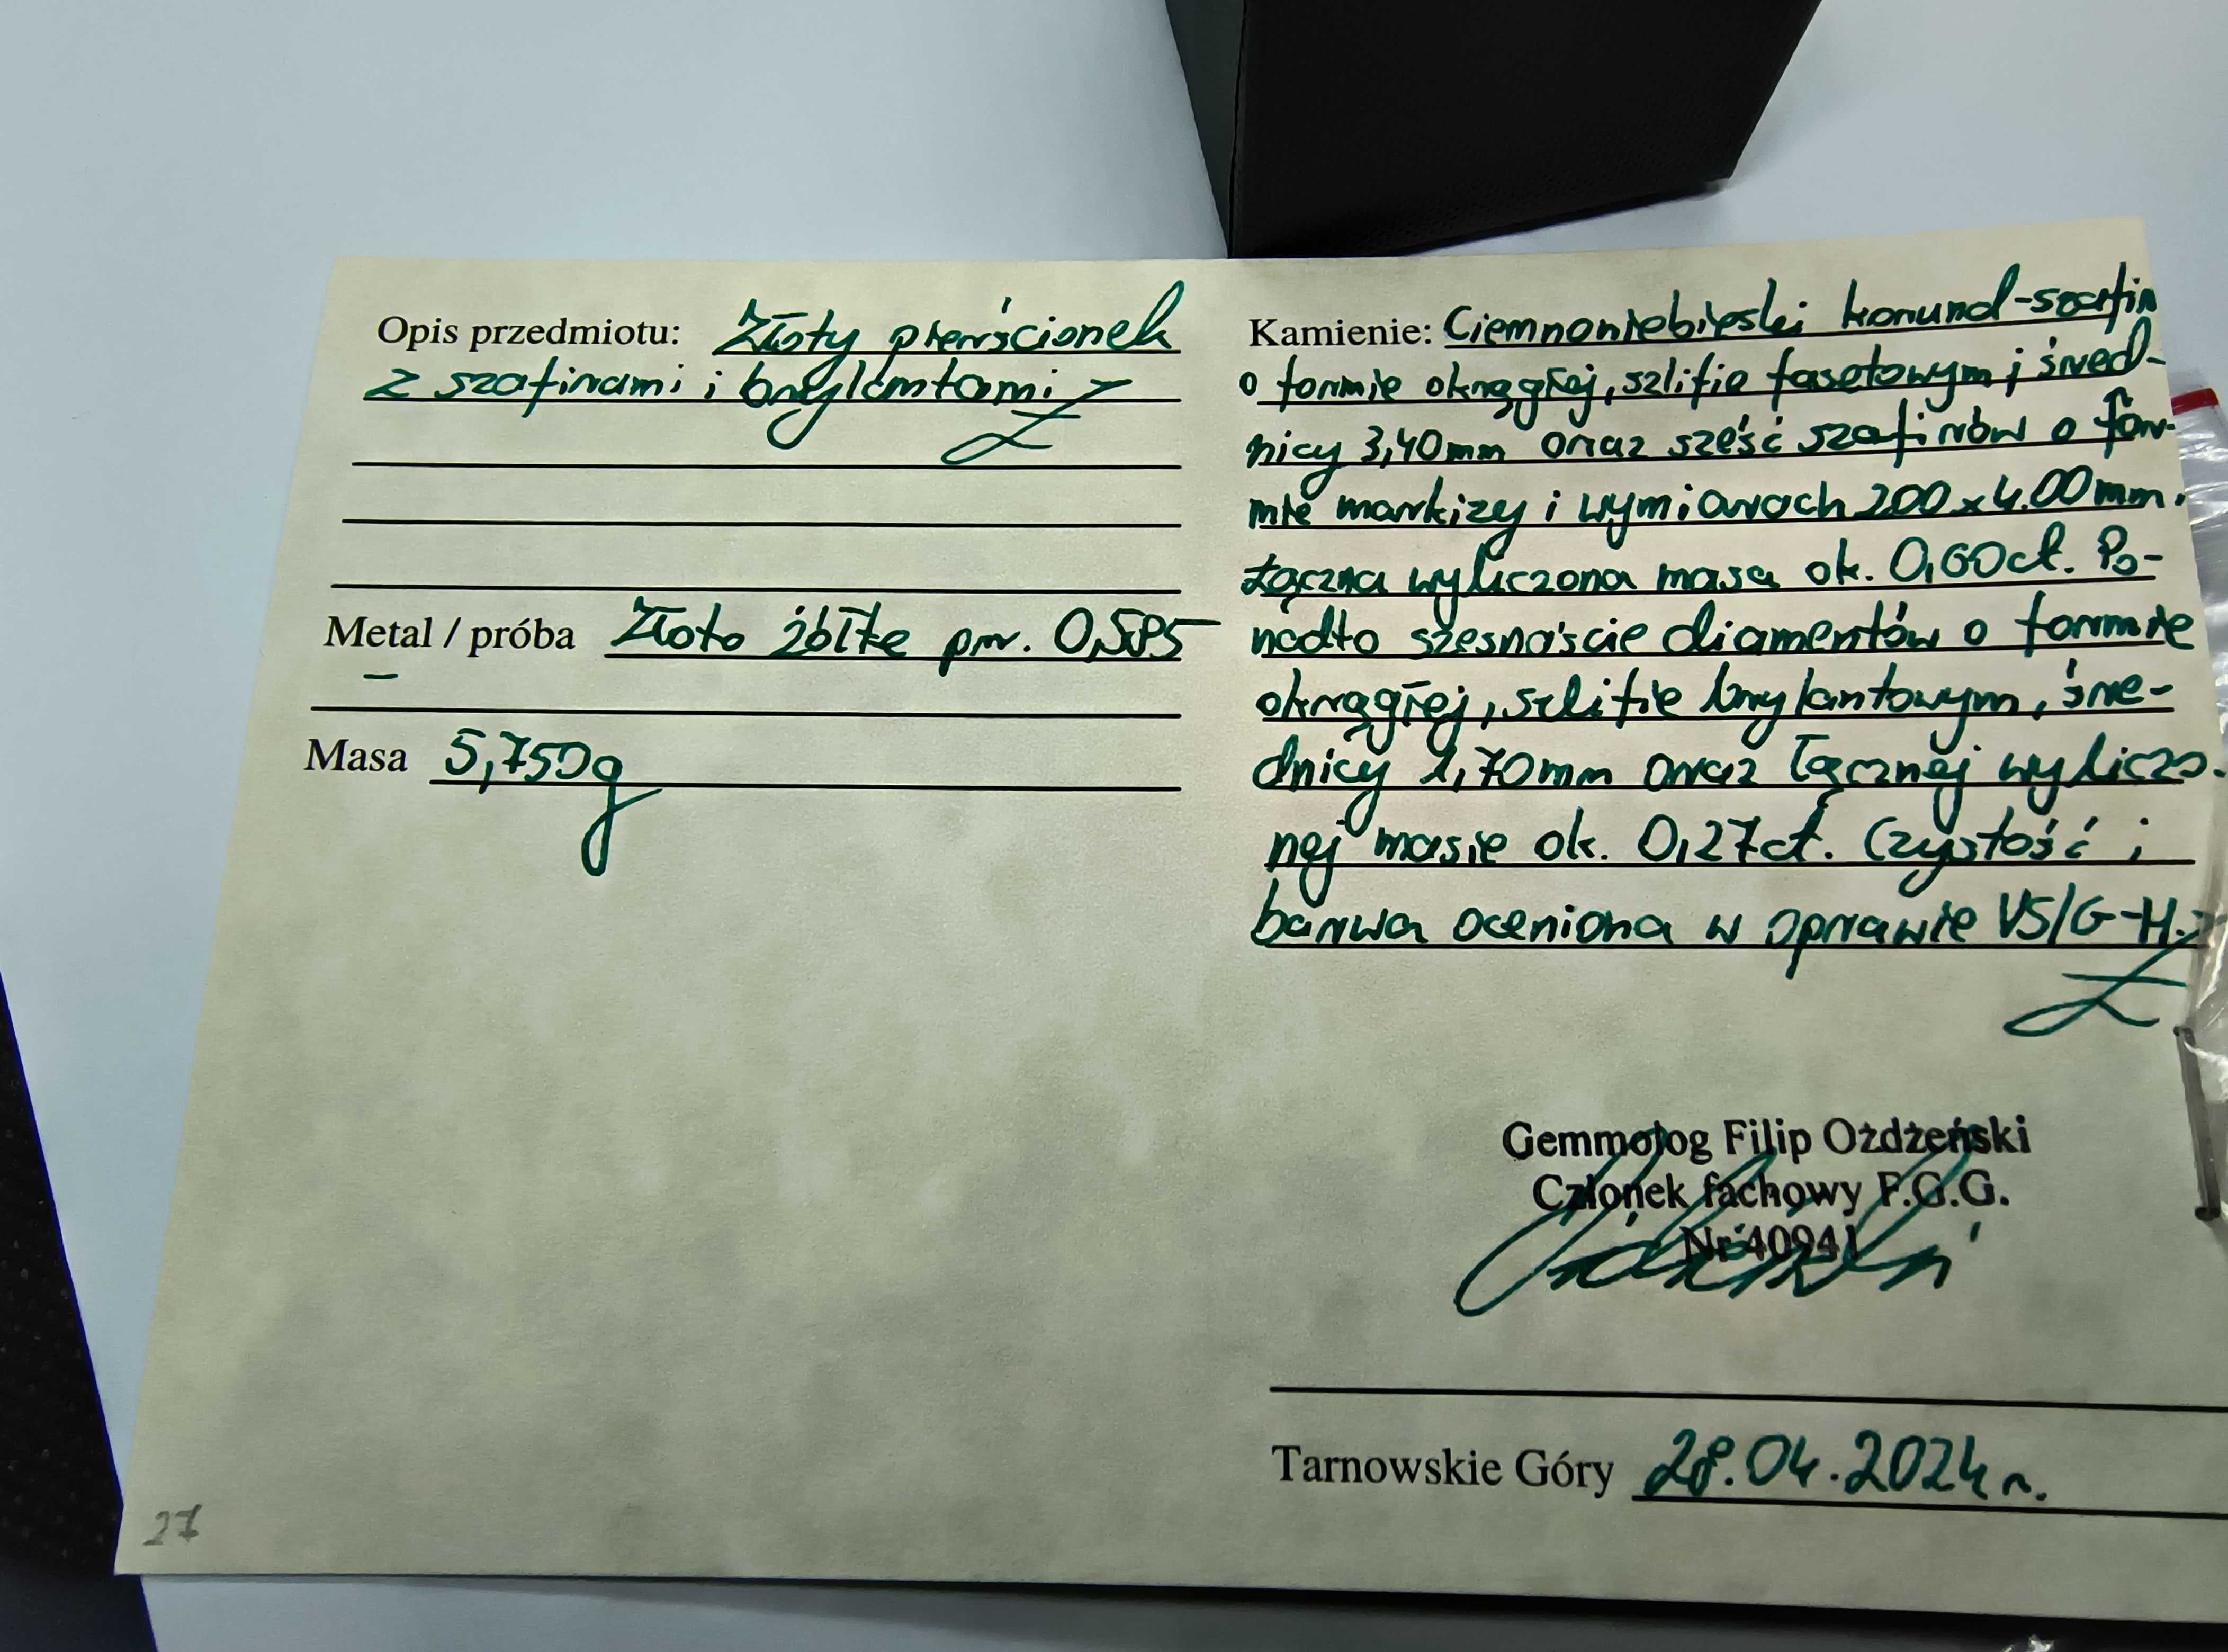 Opis przedmiotu: Złoty pierścionek
z szafirami i brylantami
Metal / próba Złoto żółte pr. 0,585
Masa 5,750g
Kamienie: Ciemnoniebieski korund-szafir
o formie okrągłej, szlifie fasetowym i śred-
nicy 3,40mm oraz sześć szafirów o for-
mie markizy i wymiarach 2.00 x 4.00mm.
Łączna wyliczona masa ok. 0,60ct. Po-
nadto szesnaście diamentów o formie
okrągłej, szlifie brylantowym, śre-
dnicy 1,70mm oraz łącznej wyliczo-
nej masie ok. 0,27ct. Czystość i
barwa oceniona w oprawie VS/G-H.
Gemmolog Filip Ożdżeński
Członek fachowy F.G.G.
Nr 40941
Tarnowskie Góry 28.04.2024r.
27